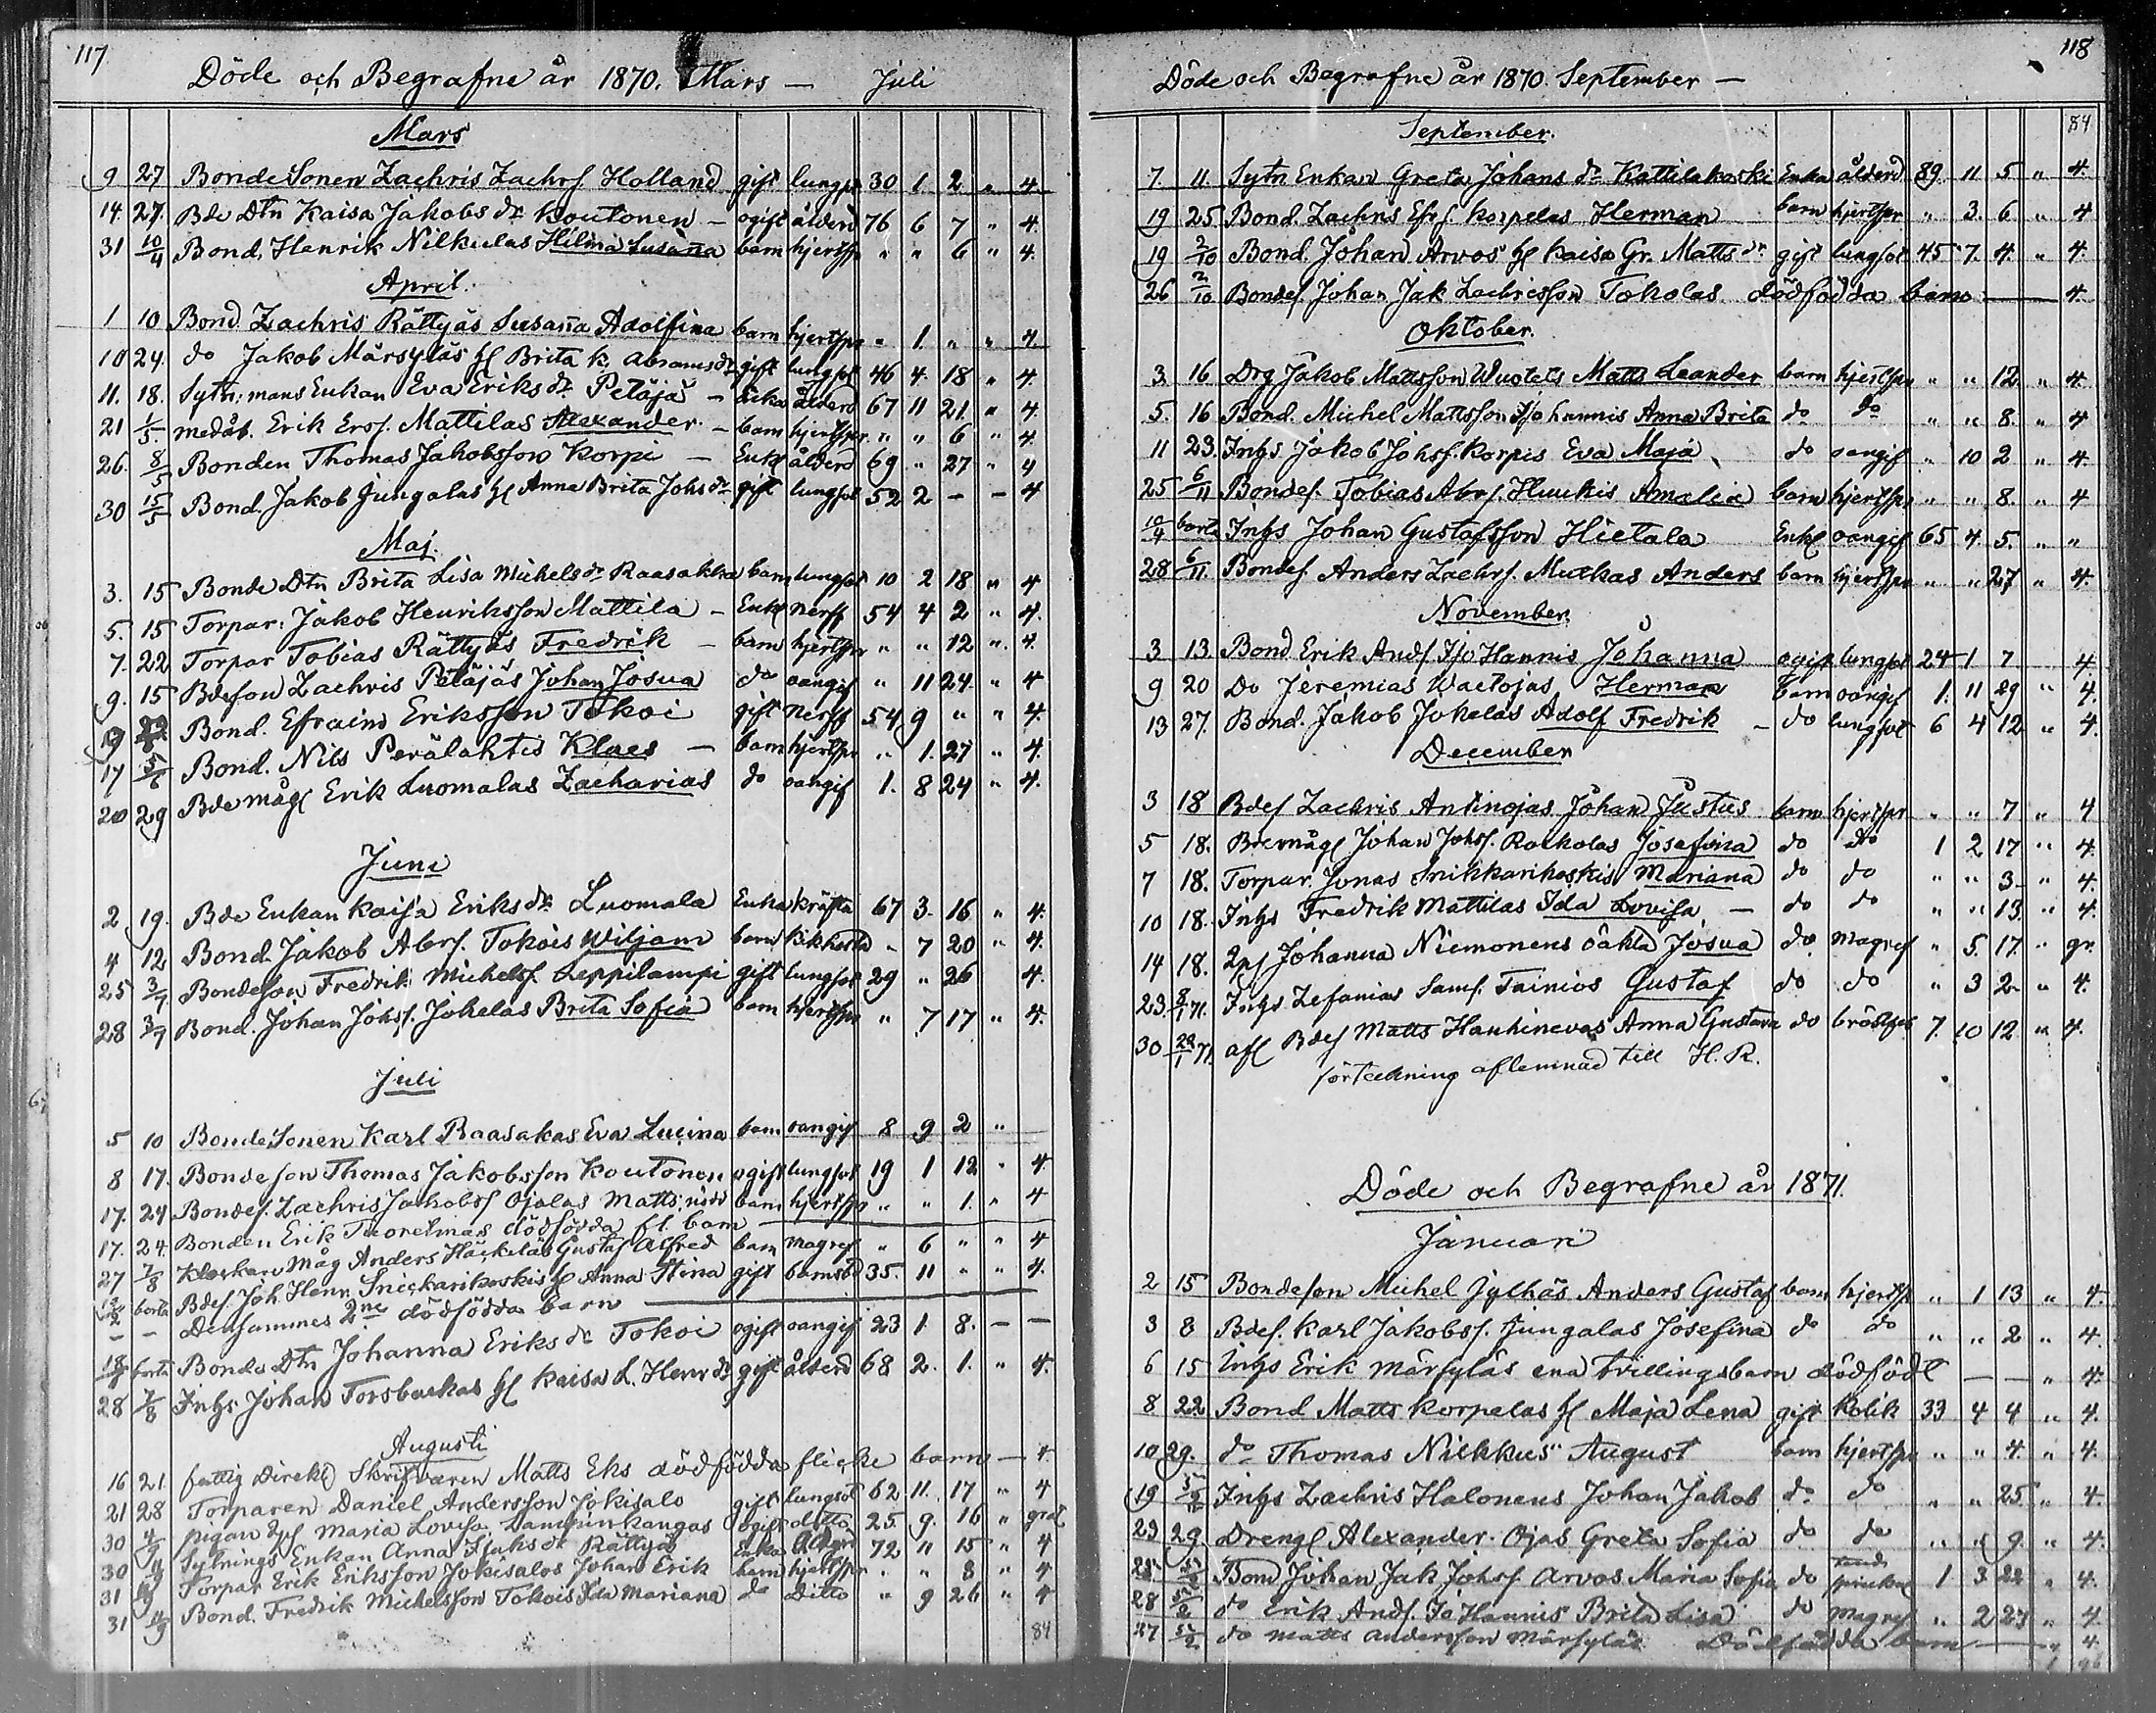 117
Döde och Begrafne år 1870. Mars — Juli
Mars
9 27 BondeSonen Zachris Zachrs. Holland gift lungs 30 1 2 " 4
14 27. Bde Dtn Kaisa Jakobs dr Koutonen — ogift ålderd 76 6 7 " 4
31 10/4 Bond. Henrik Nilkulas Hilma Susanna barn hjertspr " " 6 " 4
April.
1 10 Bond Zachris Rättyäs Susanna Adolfina barn hjertspr " 1. " " 4
10 24. do Jakob Märsyläs h Brita K. Abramsdr gift lungsot 46 4. 18 " 4.
11. 18. Sytn:mans Enkan Eva Eriks dr Petäjä — Enka ålderd 67 11 21. " 4.
21 1/5. Erik Ers. Mattilas Alexander. — barn hjertspr. " " 6 " 4.
26. 8/5 Bonden Thomas Jakobsson Korpi — Enkl ålderd 69 " 27 " 4
30 15/5 Bond. Jakob Ljungalas h Anna Brita Johs dr gift lungsot 52 2 — — 4
Maj.
3. 15 Bonde Dtn Brita Lisa Michels dr Raasakka barn lungsot 10 2 18 " 4
5. 15 Torpar. Jakob Henriksson Mattila — Enkl nerff 54 4 2 " 4.
7. 22 Torpar Tobias Rättyäs Fredrik — barn hjertspr " " 12 " 4
9. 15 Bdeson Zachris Petäjäs Johan Josua do oangif " 11 24. " 4
19 Bond. Efraim Eriksson Tokoi gift nerff 54 9 " " 4.
17 5/6 Bond. Nils Perälahtis Klaes — barn hjertspr " 1. 27 " 4.
20 29 Bde mågl Erik Luomalas Zacharias do oangif 1. 8 24 " 4.
Juni
2 19. Bde Enkan Kaisa Eriks dr Luomala Enka kräfta 67 3. 16 " 4.
4 12 Bond. Jakob Abrs. Tokois Wiljam barn kikhosta " 7 20 " 4.
25 3/7 Bondeson Fredrik Michelss. Leppilampi gift lungsot 29 " 26 4.
28 3/7 Bond. Johan Johss. Jokelas Brita Sofia barn hjertspr " 7 17 " 4.
Juli
5 10 BondeSonen Karl Raasakas Eva Lucina barn oangif 8 9 2 "
8 17. Bondeson Thomas Jakobsson Koutonen ogift lungsot 19 1 12 " 4.
17. 24 Bondes. Zachris Jakobss Ojalas Matts barn hjertspr " " 1. " 4
17. 24. Bonden Erik Tuorelmas dödfödda fl. barn
27 7/8 måg Anders Häckiläs Gustaf Alfred barn magref " 6 " " 4
borta Bdes. Joh. Henr. Snickarikoskis h Anna Stina gift barnsbd 35. 11 " " 4.
— — Densammes 2ne dödfödda barn
borta Bonde Dtn Johanna Eriks dr Tokoi ogift oangif 23 1 8. — —
28 7/8 Inhs Johan Torsbackas h Kaisa L. Henr dr gift ålderd 68 2. 1. " 4.
Augusti
16 21. fattig Direkt Skrifvaren Matts Eks dödfödda flicke barn — 4
21 28 Torparen Daniel Andersson Jokisalo gift lungsot 62 11. 17 " 4
30 4/9 pigan Maria Lovisa Lampinkangas ogift ditto 25. 9. 16 "
30 11/9 Sytnings Enkan Anna dr Rättyä Enka 72 11 15 " 4
31 Torpar Erik Eriksson Jokisalos Johan Erik barn hjertspr " " 8 " 4
31 11/9 Bond. Fredrik Michelsson Tokois Ida Mariana do Ditto " 9 26 " 4
84
118
Döde och Begrafne år 1870. September —
84
September.
7. 11. Sytn Enkan Greta Johans dr Kattilakoski Enka ålderd 89. 11 5 " 4.
19 25 Bond. Zachris Efr. Korpelas Herman barn hjertspr " 3. 6 " 4
19 2/10 Bond. Johan Arvos h Kaisa Gr. Matts dr gift lungsot 45 7. 4. " 4.
26 2/10 Bondes. Johan Jak Zachrisson Tokolas dödfödda barn — 4.
Oktober.
3 16 Drg Jakob Mattsson Wuolets Matts Leander barn hjertspr " " 12. " 4
5. 16 Bond. Michel Mattsson Isohannis Anna Brita do do " " 8. " 4
11 23. Inhs Jakob Johss. Korpis Eva Maja do oangif " 10 2 " 4
25 6/11 Bondes. Tobias Abrs. Huukis Amalia barn hjertspr " " 8. " 4
10/4 borta Inhs Johan Gustafsson Hietala Enkl oangif 65 4. 5. " "
28 6/11. Bondes. Anders Zachrs. Mutkas Anders barn hjertspr " " 27 " 4.
November.
3 13. Bond Erik Ands. Iso Hannis Johanna ogift lungsot 24 1 7 4
9 20 Do Jeremias Waetojas Herman barn oangif 1. 11 29 " 4.
13 27. Bond. Jakob Jokelas Adolf Fredrik — do lungsot 6 4 12 " 4.
December
3 18 Bdes Zachris Antinojas Johan Justus barn hjertspr " " 7 " 4
5 18. Bdemågl Johan Johss. Rockolas Josefina do do 1 2 17 " 4.
7 18. Torpar. Jonas Snikkarikoskis Mariana do do " " 3. " 4.
10 18. Inhs Fredrik Mattilas Ida Lovisa — do do " " 13. " 4.
14 18. Johanna Niemonens oäkta Josua do magref " 5. 17. " gr.
23. 8/1 71. Inhs Zefanias Sams. Tainios Gustaf do do " 3 2. " 4.
30 22/1 71. afl Bdes Matts Hauhinevas Anna Gustava do bröstfeb 7. 10 12. " 4.
förteckning aflemnad till H. R.
Döde och Begrafne år 1871.
Januari
2 15 Bondeson Michel Jylhäs Anders Gustaf barn hjertsp " 1 13 " 4.
3 8 Bdes. Karl Jakobss. Ljungalas Josefina do do " " 2 " 4.
6 15 Inhs Erik Märsyläs ena tvillingsbarn dödfödt — — " 4.
8. 22. Bond Matts Korpelas h Maja Lena gift Kolik 33 4 4 " 4.
10 29. do Thomas Niekkus August barn hjertspr " " 4. " 4.
19 5/2 Inhs Zachris Halonens Johan Jakob do do " " 25. " 4.
23 29. Drengl Alexander Ojas Greta Sofia do do " " 9. " 4.
5/2 Bond Johan Jak Johss. Arvos Maria Sofia do 1 3 22 " 4.
28 5/2 do Erik Ands. Iso Hannis Brita Lisa do magref " 2 27 " 4.
27 5/2 do Matts Andersson Märsyläs Dödfödda barn — " 4.